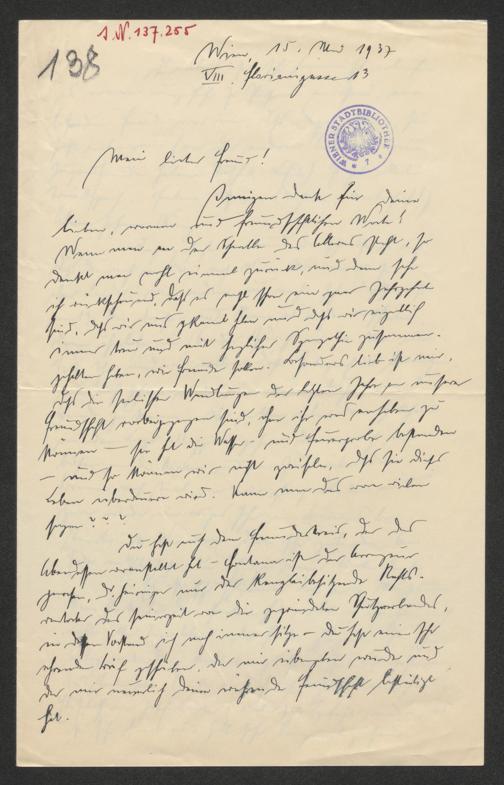 J.N. 137.255
138
Wien, 15. Mai 1937
VIII. Florianigasse 13
WIENER STADTBIBLIOTHEK
* 7 *
Mein lieber Freund!
Innigen Dank für deine
lieben, warmen und freundschaftlichen Worte!
Wenn man an der Schwelle des Alters steht, so
denkt man recht einmal zurück, und dann sehe
ich rückschauend, daß es recht schon ein paar Jahrzehnte
sind, daß wir uns gekannt haben und daß wir eigentlich
immer treu und mit herzlicher Sympathie zusammen-
gehalten haben, wie Freunde sollen. Besonders lieb ist mir,
daß die seelischen Wandlungen der letzten Jahre an unserer
Freundschaft vorbeigegangen sind, ohne ihr was anhaben zu
können – sie hat die Wasser- und Feuerprobe bestanden
– und so können wir nicht zweifeln, daß sie dieses
Leben überdauern wird. Kann man das von vielen
sagen???
Du hast mit dem Freundeskreis, der das
Abendessen veranstaltet hat – ist der
große, Dr. nur der Kanzleibesitzende Rechts-
vertreter des seinerzeit von dir gegründeten Schutzverbandes,
in dessen Vorstand ich noch immer sitze – du hast einen sehr
ehrenden Brief geschrieben, der mir übergeben wurde und
der mir neuerlich deine Freundschaft bestätigt
hat.